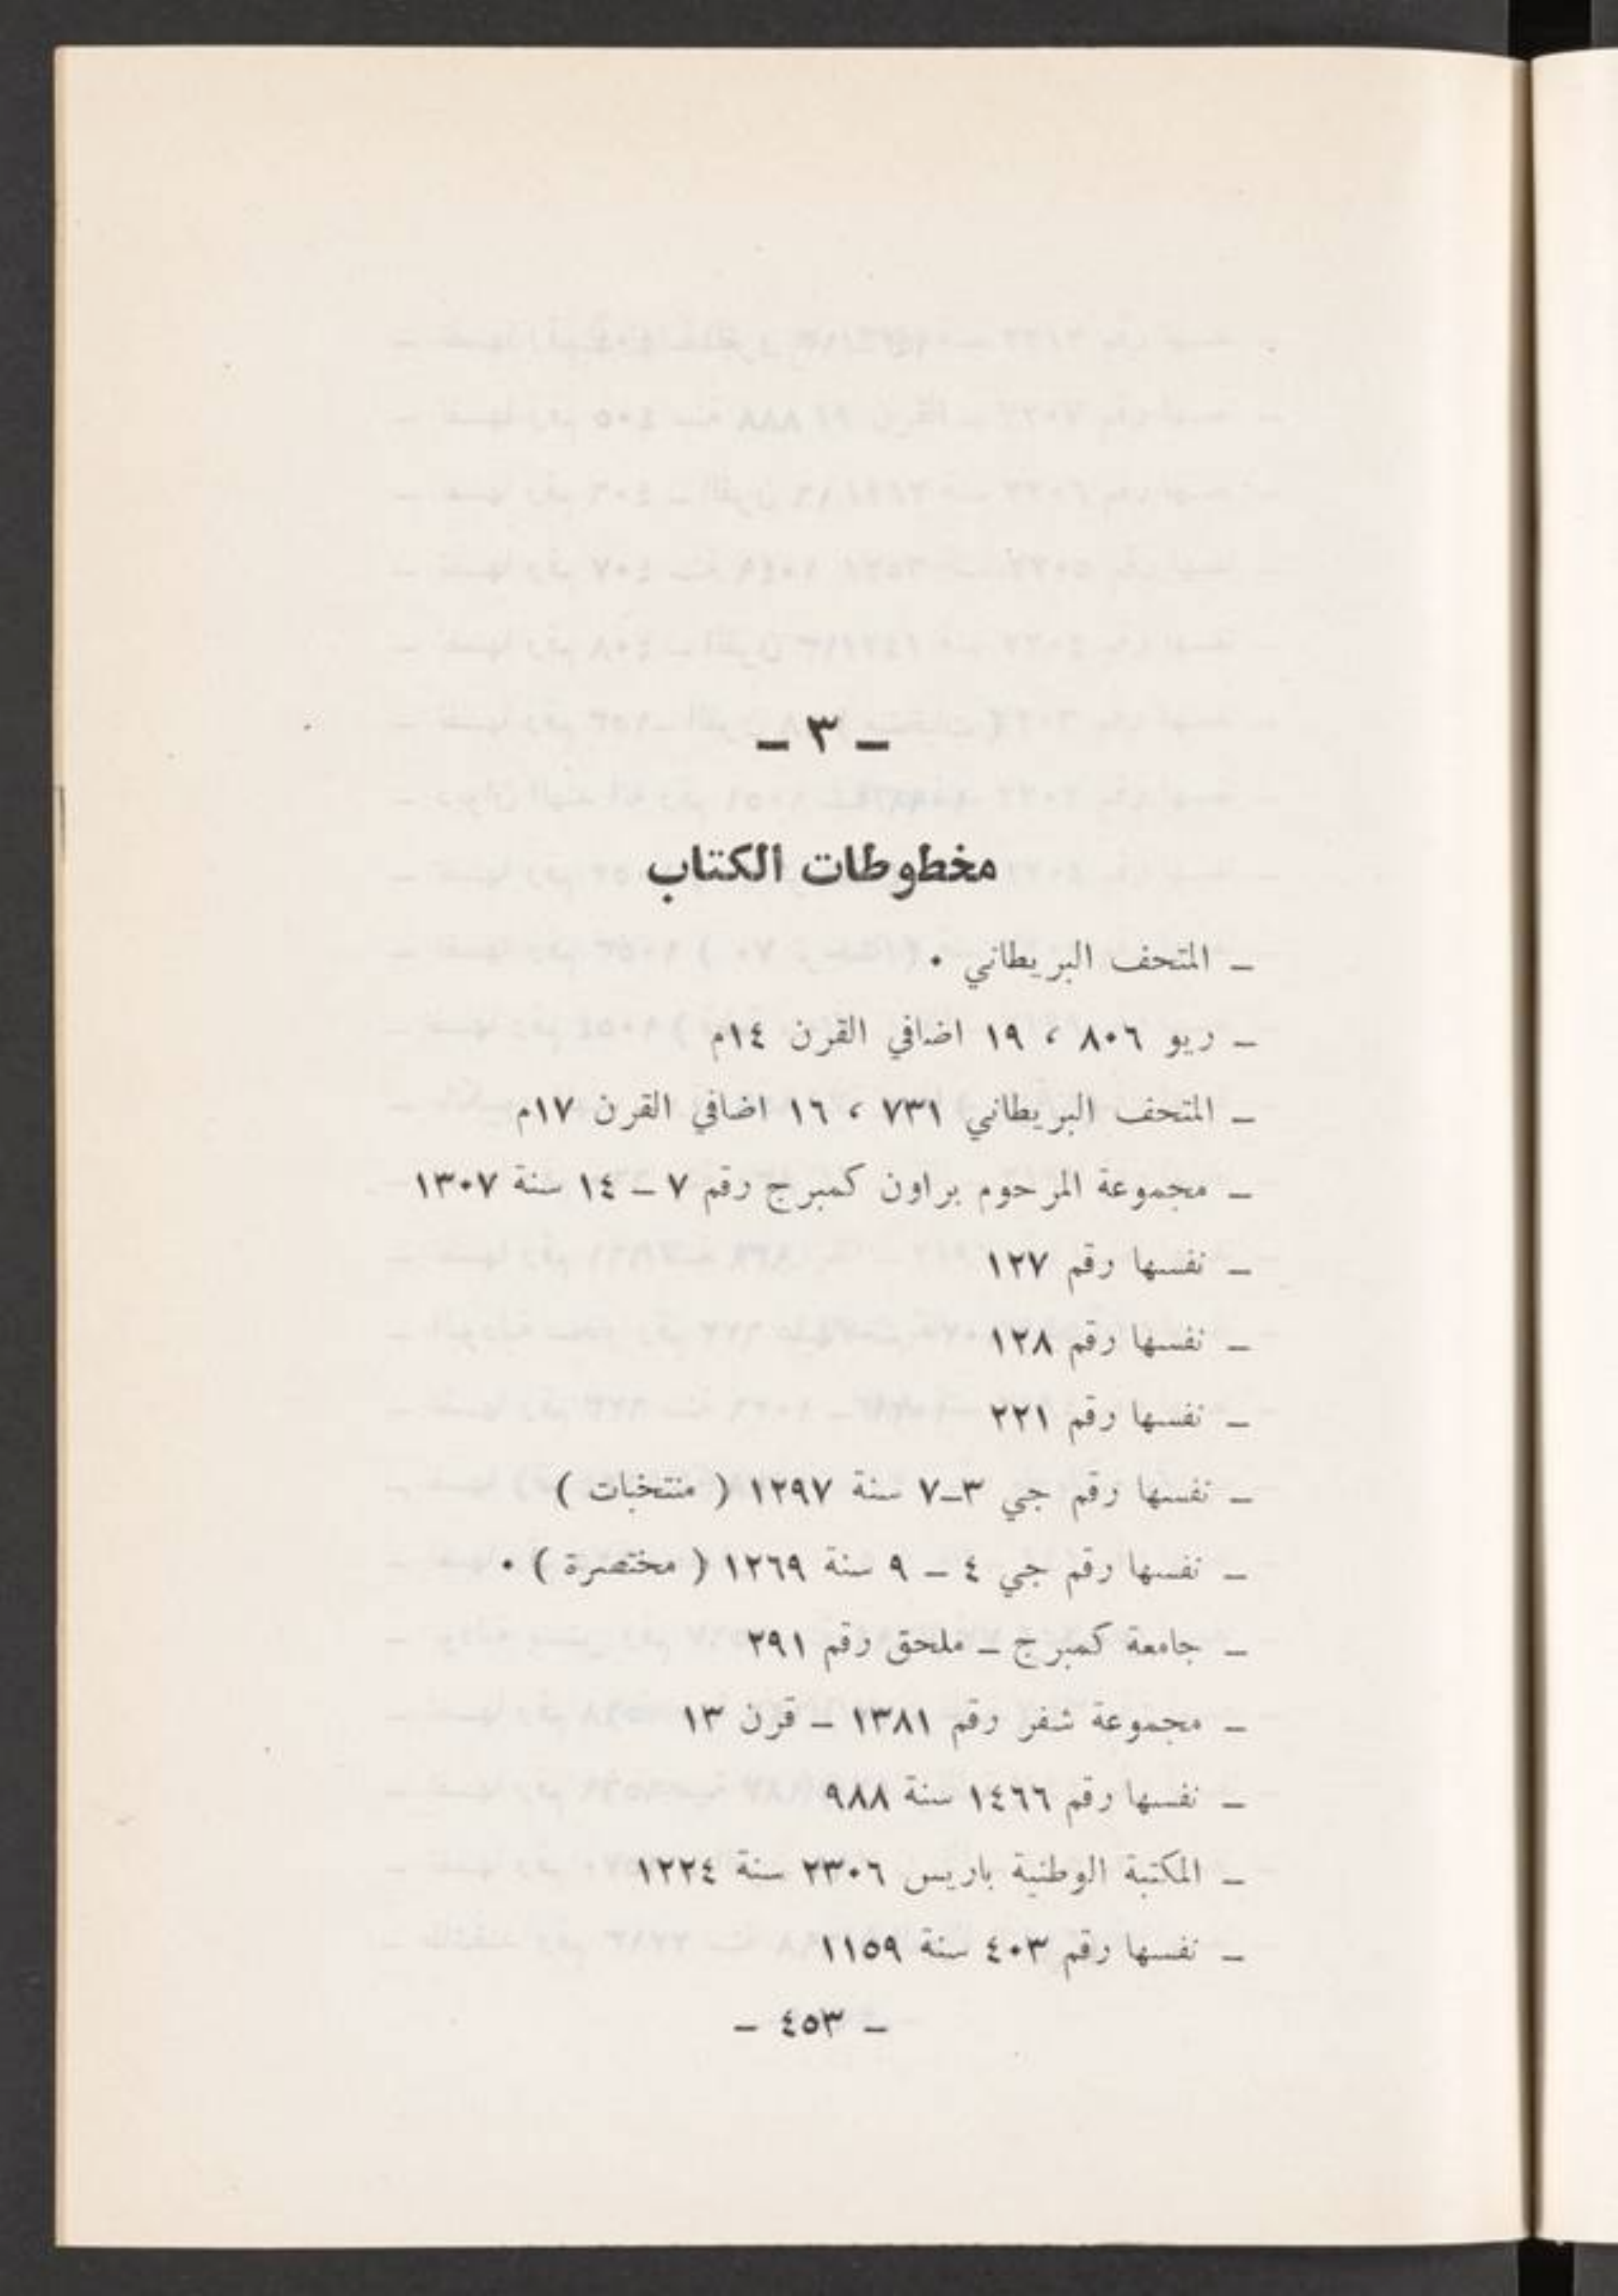 ـ ٣ ـ
مخطوطات الكتاب
ـ المتحف البريطاني ٠
ـ ريو ٨٠٦ ، ١٩ اضافي القرن ١٤م
ـ المتحف البريطاني ٧٣١ ، ١٦ اضافي القرن ١٧م
ـ مجموعة المرحوم براون كمبرج رقم ٧ ـ ١٤ سنة ١٣٠٧
ـ نفسها رقم ١٢٧
ـ نفسها رقم ١٢٨
ـ نفسها رقم ٢٢١
ـ نفسها رقم جي ٣ـ٧ سنة ١٢٩٧ ( منتخبات )
ـ نفسها رقم جي ٤ ـ ٩ سنة ١٢٦٩ ( مختصرة ) ٠
ـ جامعة كمبرج ـ ملحق رقم ٢٩١
ـ مجموعة شفر رقم ١٣٨١ ـ قرن ١٣
ـ نفسها رقم ١٤٦٦ سنة ٩٨٨
ـ المكتبة الوطنية باريس ٢٣٠٦ سنة ١٢٢٤
ـ نفسها رقم ٤٠٣ سنة ١١٥٩
ـ ٤٥٣ ـ